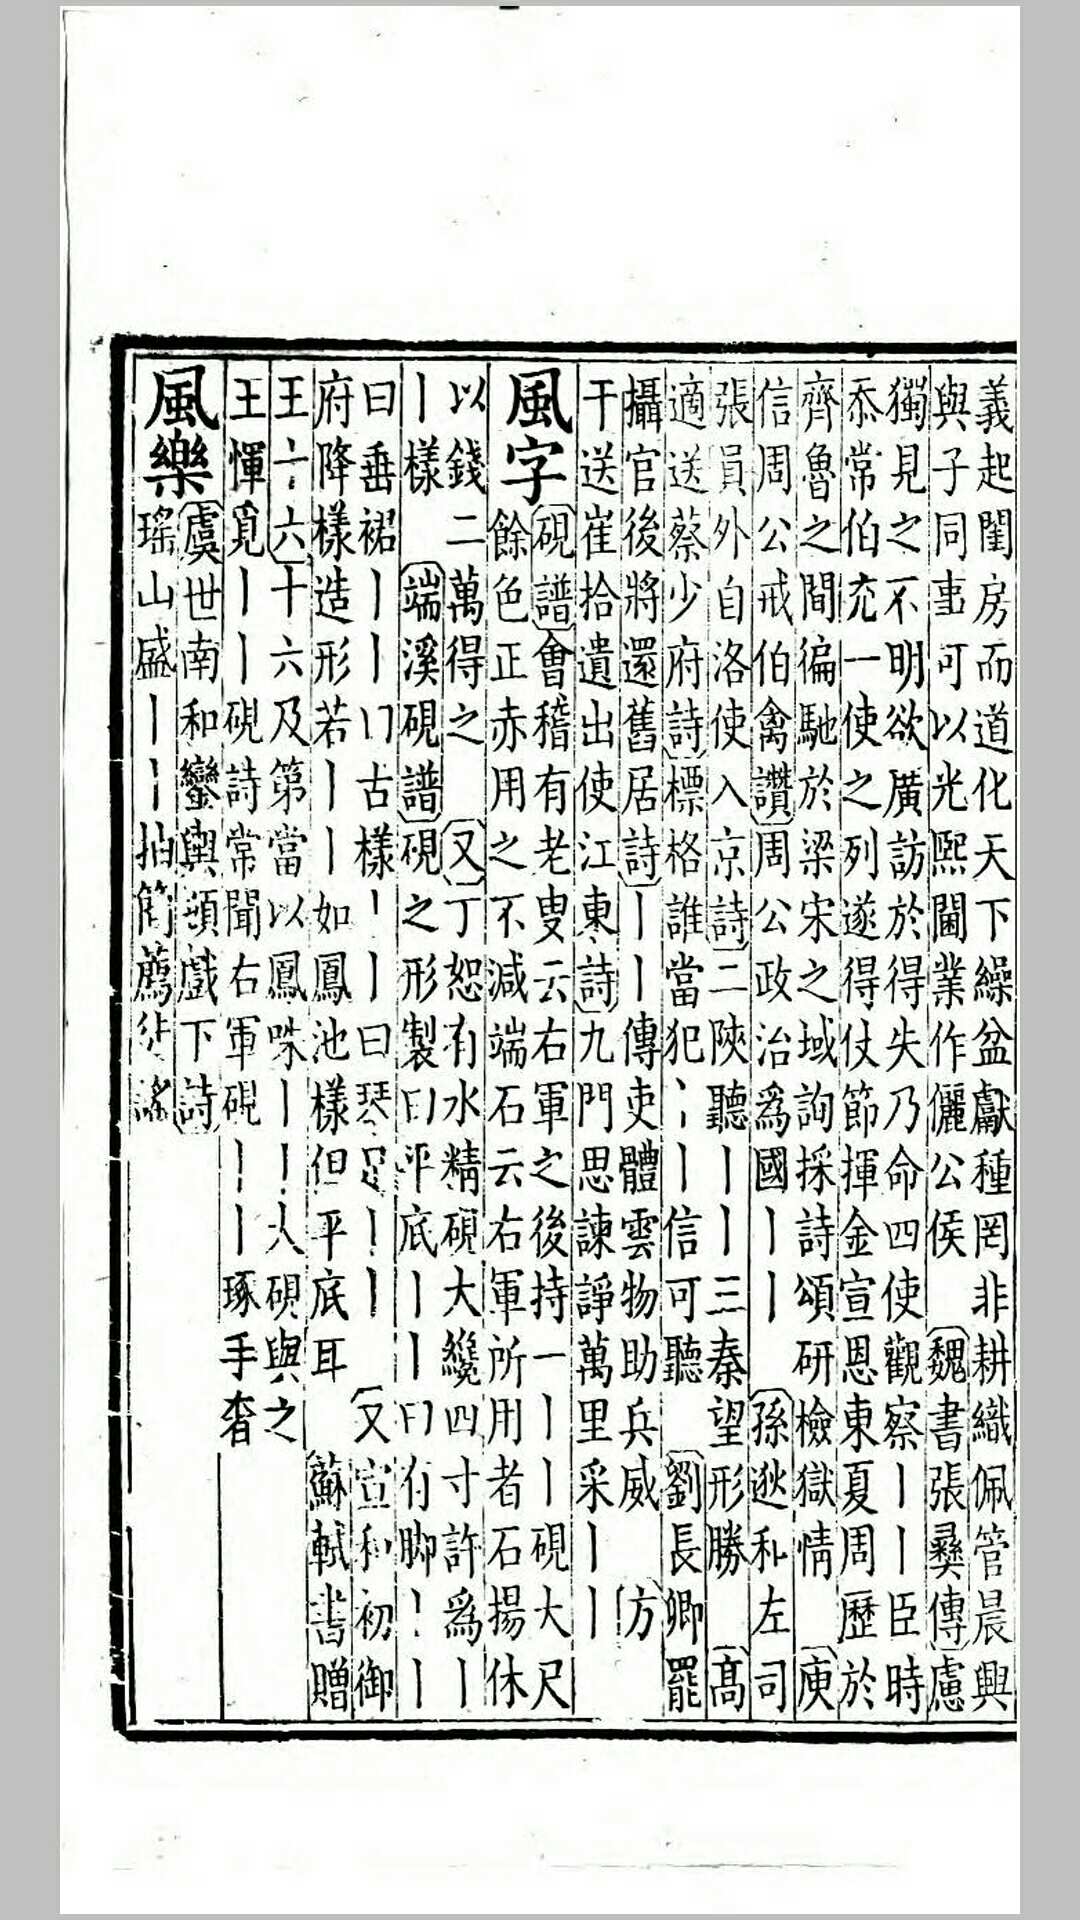 義起閨房而道化天下繰盆獻種罔非耕織佩管晨興
與子同事可以光熙閫業作儷公侯 魏書張彝傳慮
獨見之不明欲廣訪於得失乃命四使觀察丨丨臣時
忝常伯充一使之列遂得仗節揮金宣恩東夏周歷於
齊魯之間徧馳於梁宋之域詢採詩頌研檢獄情 庾
信周公戒伯禽讚周公政治爲國丨丨 孫逖和左司
張員外自洛使入京詩二陜聽丨丨三秦望形勝 高
適送蔡少府詩標格誰當犯丨丨信可聽 劉長卿罷
攝官後將還舊居詩丨丨傳吏體雲物助兵威 方
干送崔拾遺出使江東詩九門思諫諍萬里采丨丨
風字
硯譜會稽有老叟云右軍之後持一丨丨硯大尺
餘色正赤用之不減端石云右軍所用者石揚休
以錢二萬得之 又丁恕有水精硯大纔四寸許爲丨
丨樣 端溪硯譜硯之形製曰平底丨丨曰有脚丨丨
曰垂裙丨丨曰古樣丨丨曰琴足丨丨 又宣和初御
府降樣造形若丨丨如鳳池樣但平底耳 蘇軾書贈
王十六十六及第當以鳳咮丨丨大硯與之
王惲覓丨丨硯詩常聞右軍硯丨丨琢手杳
風樂
虞世南和鑾輿頓戲下詩
瑤山盛丨丨抽簡薦徒謠